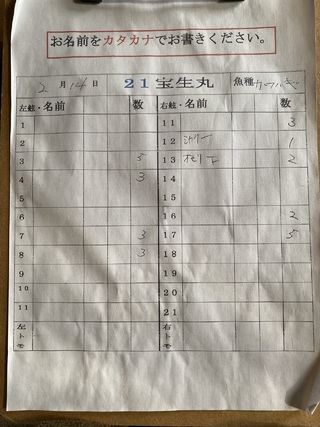 お名前をカタカナでお書きください。
2月14日 21宝生丸 魚種
左舷・名前 数 右舷・名前 数
1 11 3
2 12 1
3 5 13 2
4 3 14
5 15
6 16 2
7 3 17 5
8 3 18
9 19
10 20
11 21
左トモ 右トモ